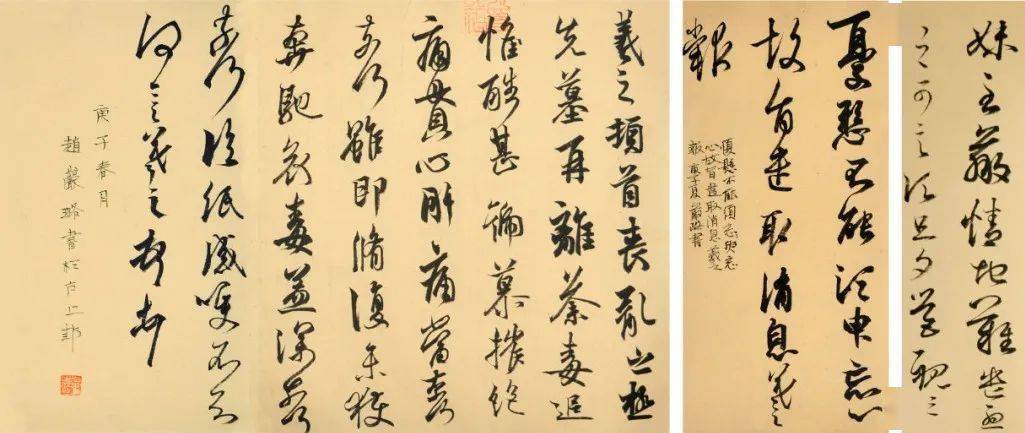 妹至羸情地難遣憂
之可言須旦夕營視之
憂懸不能須臾忘心
故旨遣取消息羲之
報
憂懸不能須
心故旨遣取消息羲之
報庚子夏嚴璐書
羲之頓首喪亂之極
先墓再離荼毒追
惟酷甚號慕摧絕
痛貫心肝痛當奈何
奈何雖即脩復未獲
奔馳哀毒益深奈何
奈何臨紙感哽不知
何言羲之頓首頓首
庚子春月
趙嚴璐書於